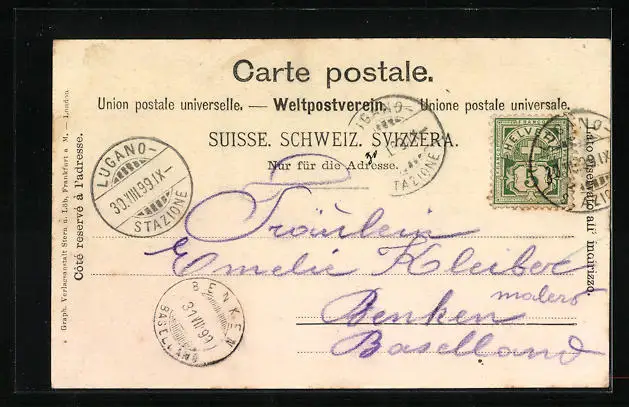 Carte postale.
Union postale universelle. — Weltpostverein. — Unione postale universale.
SUISSE. SCHWEIZ. SVIZZERA.
Nur für die Adresse.
Côté reservé à l'adresse.
Graph. Verlagsanstalt Stern u. Löb, Frankfurt a. M. — London.
Lato riservato all' indirizzo.
LUGANO
30.VIII.99.IX
STAZIONE
LUGANO
STAZIONE
FRANCO
HELVETIA
5
Fräulein
Emelie Kleiber
malers
Benken
Baselland
BENKEN
31.VIII.99
BASELLAND